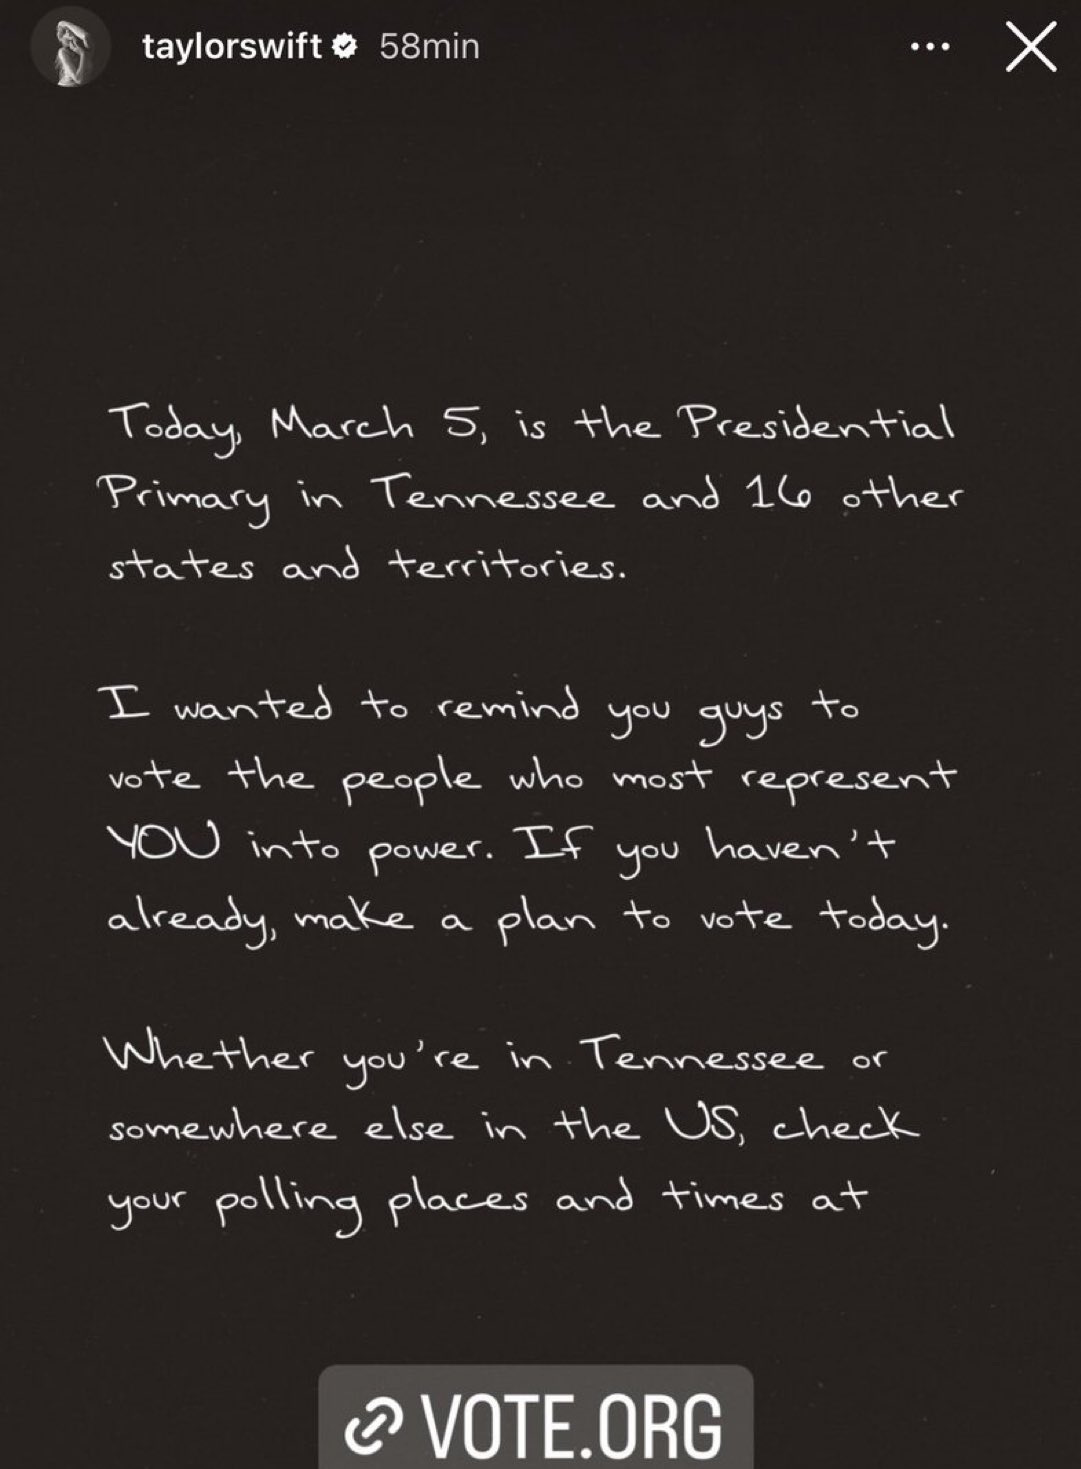 taylorswift 58min
Today, March 5, is the Presidential
Primary in Tennessee and 16 other
states and territories.
I wanted to remind you guys to
vote the people who most represent
YOU into power. If you haven't
already, make a plan to vote today.
Whether you're in Tennessee or
somewhere else in the US, check
your polling places and times at
VOTE.ORG